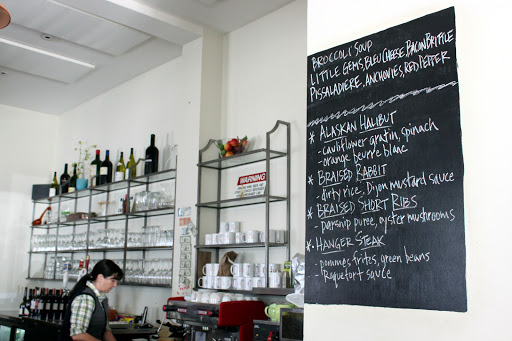 BROCCOLI SOUP
LITTLE GEMS, BLEU CHEESE, BACON BRITTLE
PISSALADIERE, ANCHOVIES, RED PEPPER
* ALASKAN HALIBUT
- cauliflower gratin, spinach
- orange beurre blanc
* BRAISED RABBIT
- dirty rice, Dijon mustard sauce
* BRAISED SHORT RIBS
- parsnip puree, oyster mushrooms
* HANGER STEAK
- pommes frites, green beans
- roquefort sauce
WARNING